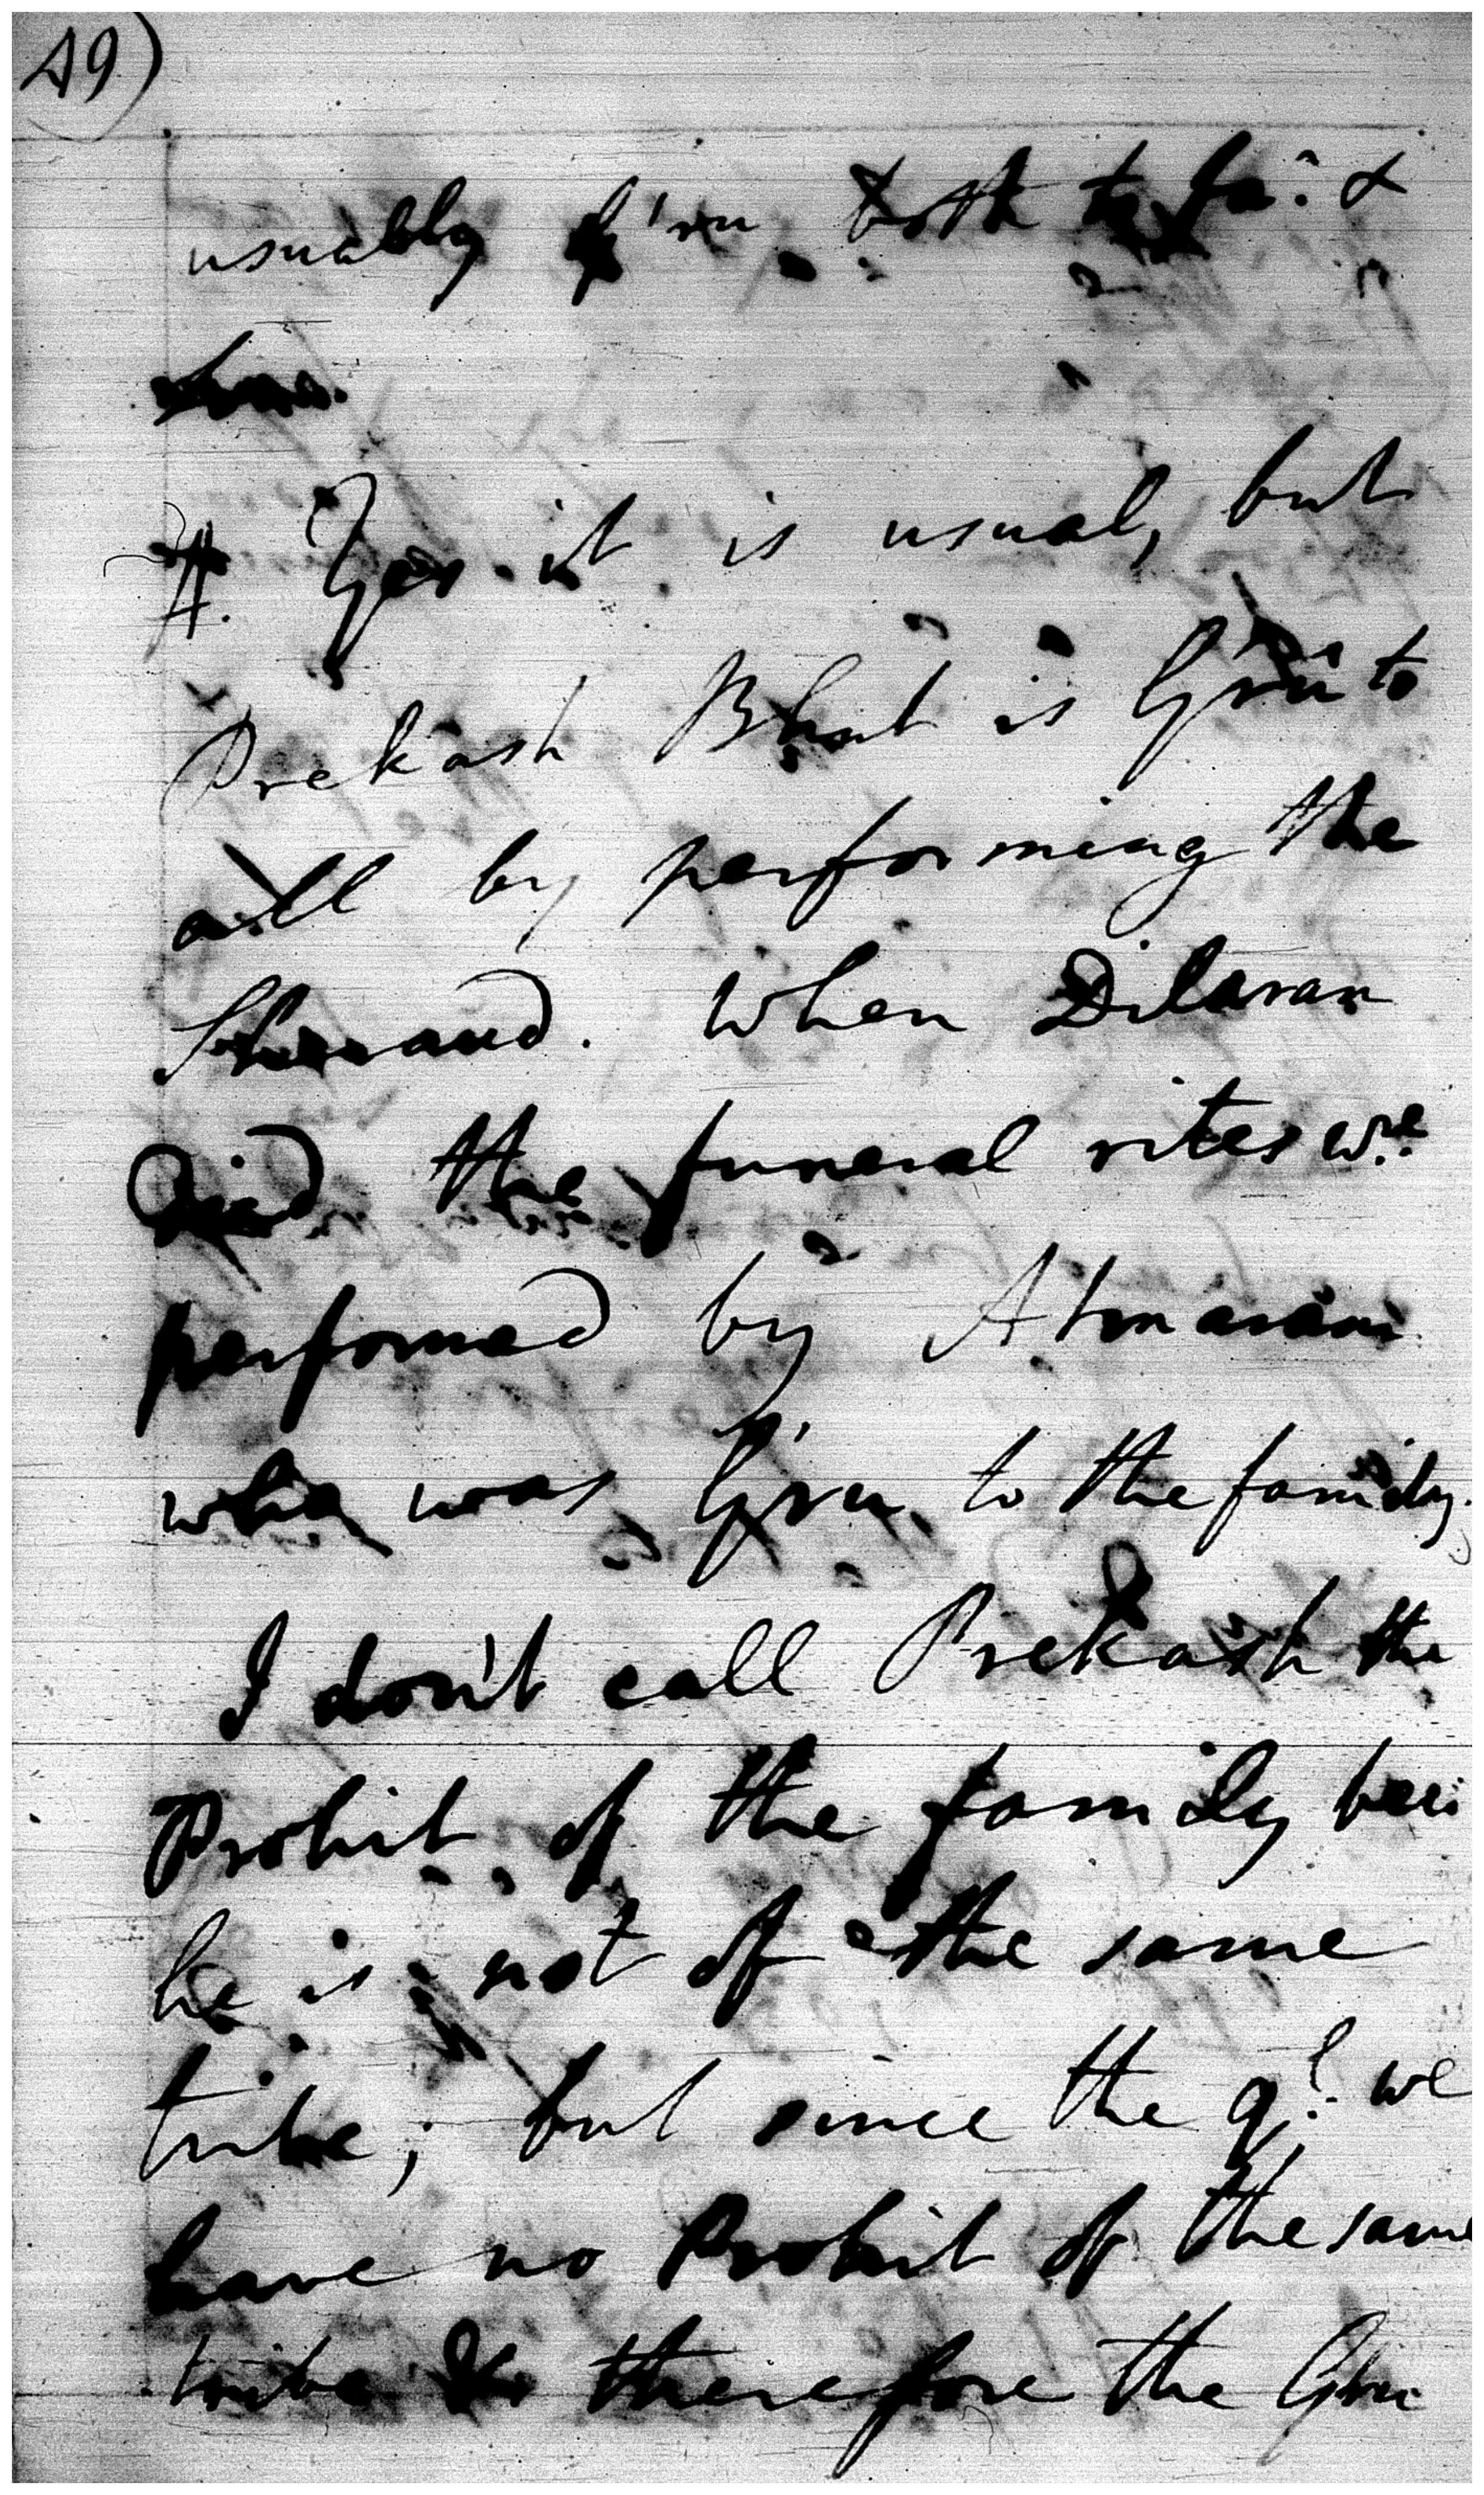 49)
usually G'ru both to fa: &
sons.
A. Yes it is usual, but
Prekash Bhut is G'rû to
all by performing the
Shraud. When Dilaram
Died the funeral rites w:re
performed by Atmaram
who was G'ru to the family.
I don't call Prekash the
Prohit of the family
he is not of the same
tribe; but since the we
have no Prohit of the same
tribe & therefore the Gru